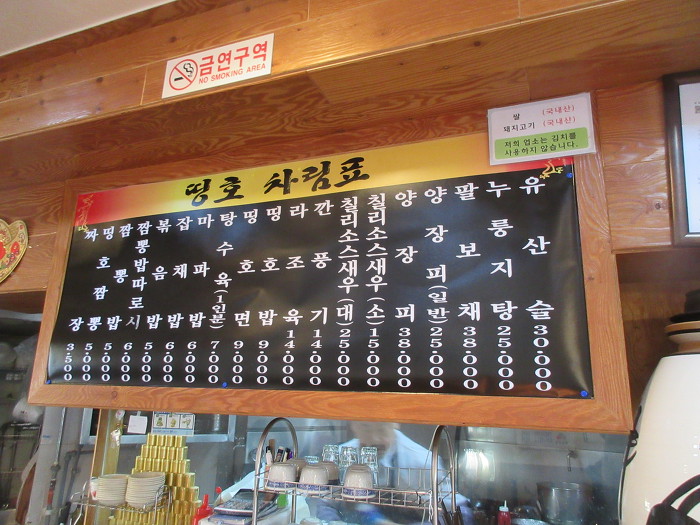 금연구역
NO SMOKING AREA
쌀 (국내산)
돼지고기 (국내산)
저희 업소는 김치를
사용하지 않습니다.
띵호 차림표
짜장 3.500
띵호짬뽕 5.000
짬뽕밥 5.000
짬뽕밥따로시 6.000
볶음밥 5.000
잡채밥 6.000
마파밥 6.000
탕수육(1인분) 7.000
띵호면 9.000
띵호밥 9.000
라조육 14.000
깐풍기 14.000
칠리소스새우(대) 25.000
칠리소스새우(소) 15.000
양장피 38.000
양장피(일반) 25.000
팔보채 38.000
누룽지탕 25.000
유산슬 30.000